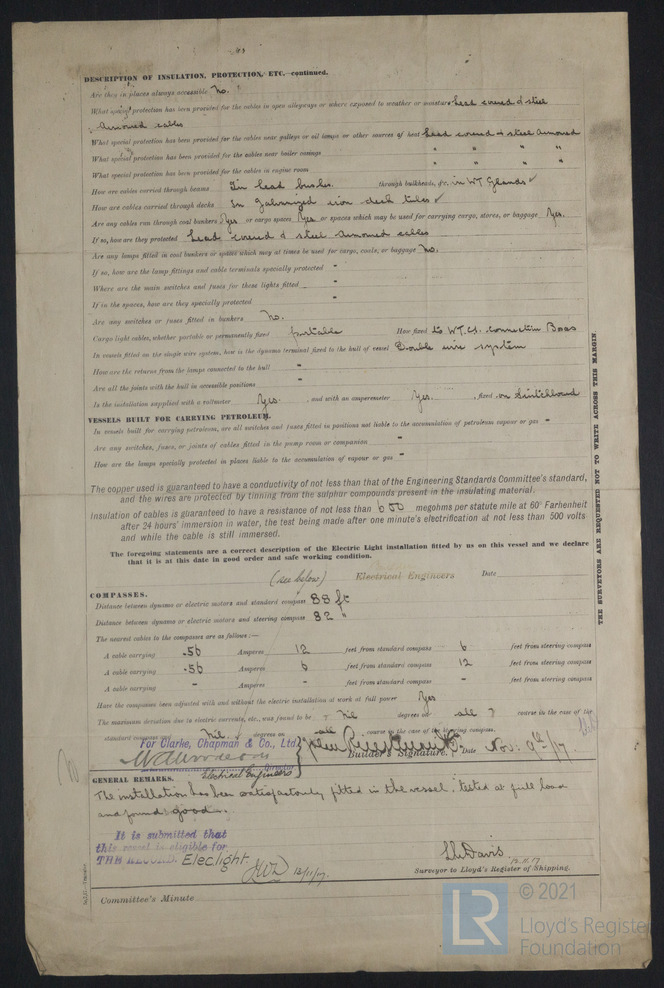 DESCRIPTION OF INSULATION, PROTECTION, ETC.—continued.
Are they in places always accessible No.
What special protection has been provided for the cables in open alleyways or where exposed to weather or moisture Lead covered & steel
armoured cables
What special protection has been provided for the cables near galleys or oil lamps or other sources of heat Lead covered & steel armoured
What special protection has been provided for the cables near boiler casings " " " "
What special protection has been provided for the cables in engine room " " " "
How are cables carried through beams In lead bushes. through bulkheads, &c. in W.T. Glands ✓
How are cables carried through decks In Galvanized iron deck tubes ✓
Are any cables run through coal bunkers Yes or cargo spaces Yes or spaces which may be used for carrying cargo, stores, or baggage Yes.
If so, how are they protected Lead covered & steel armoured cables
Are any lamps fitted in coal bunkers or spaces which may at times be used for cargo, coals, or baggage No.
If so, how are the lamp fittings and cable terminals specially protected "
Where are the main switches and fuses for these lights fitted "
If in the spaces, how are they specially protected "
Are any switches or fuses fitted in bunkers No.
Cargo light cables, whether portable or permanently fixed portable How fixed to W.T.C.I. connection Boxes
In vessels fitted on the single wire system, how is the dynamo terminal fixed to the hull of vessel Double wire system
How are the returns from the lamps connected to the hull "
Are all the joints with the hull in accessible positions "
Is the installation supplied with a voltmeter Yes. , and with an amperemeter Yes. , fixed on Switchboard
VESSELS BUILT FOR CARRYING PETROLEUM.
In vessels built for carrying petroleum, are all switches and fuses fitted in positions not liable to the accumulation of petroleum vapour or gas "
Are any switches, fuses, or joints of cables fitted in the pump room or companion "
How are the lamps specially protected in places liable to the accumulation of vapour or gas "
The copper used is guaranteed to have a conductivity of not less than that of the Engineering Standards Committee's standard,
and the wires are protected by tinning from the sulphur compounds present in the insulating material.
Insulation of cables is guaranteed to have a resistance of not less than 600 megohms per statute mile at 60° Farhenheit
after 24 hours' immersion in water, the test being made after one minute's electrification at not less than 500 volts
and while the cable is still immersed.
The foregoing statements are a correct description of the Electric Light installation fitted by us on this vessel and we declare
that it is at this date in good order and safe working condition.
(see below) Electrical Engineers Date
COMPASSES.
Distance between dynamo or electric motors and standard compass 88 ft
Distance between dynamo or electric motors and steering compass 82 "
The nearest cables to the compasses are as follows:—
A cable carrying .56 Amperes 12 feet from standard compass 6 feet from steering compass
A cable carrying .56 Amperes 6 feet from standard compass 12 feet from steering compass
A cable carrying - Amperes - feet from standard compass - feet from steering compass
Have the compasses been adjusted with and without the electric installation at work at full power Yes
The maximum deviation due to electric currents, etc., was found to be Nil degrees on all course in the case of the
standard compass and Nil degrees on all course in the case of the steering compass.
For Clarke, Chapman & Co., Ltd.
Director.
Electrical Engineers
Builder's Signature. Date Nov. 9th/17
GENERAL REMARKS.
The installation has been satisfactorily fitted in the vessel, tested at full load
and found good.
It is submitted that
this vessel is eligible for
THE RECORD. Elec. light.
12/11/17.
12.11.17
Surveyor to Lloyd's Register of Shipping.
Committee's Minute
THE SURVEYORS ARE REQUESTED NOT TO WRITE ACROSS THIS MARGIN
LR
© 2021
Lloyd's Register
Foundation